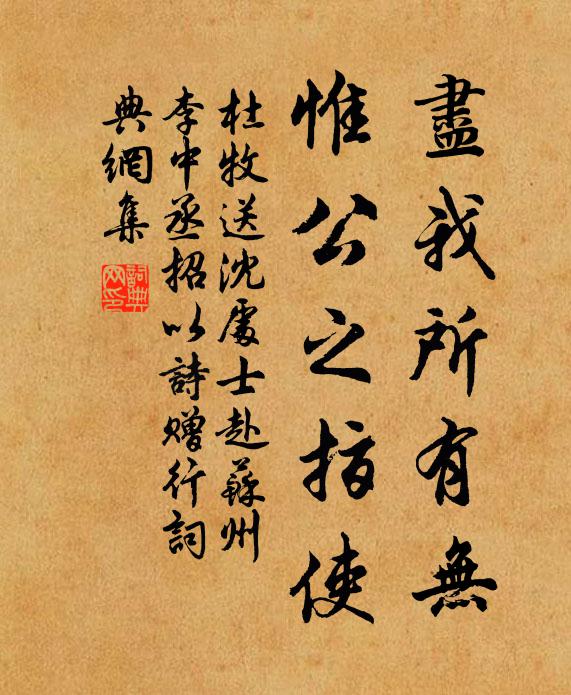 盡我所有無
惟公之指使
杜牧送沈處士赴蘇州
李中丞招以詩贈行詞
典網集
詞典網印